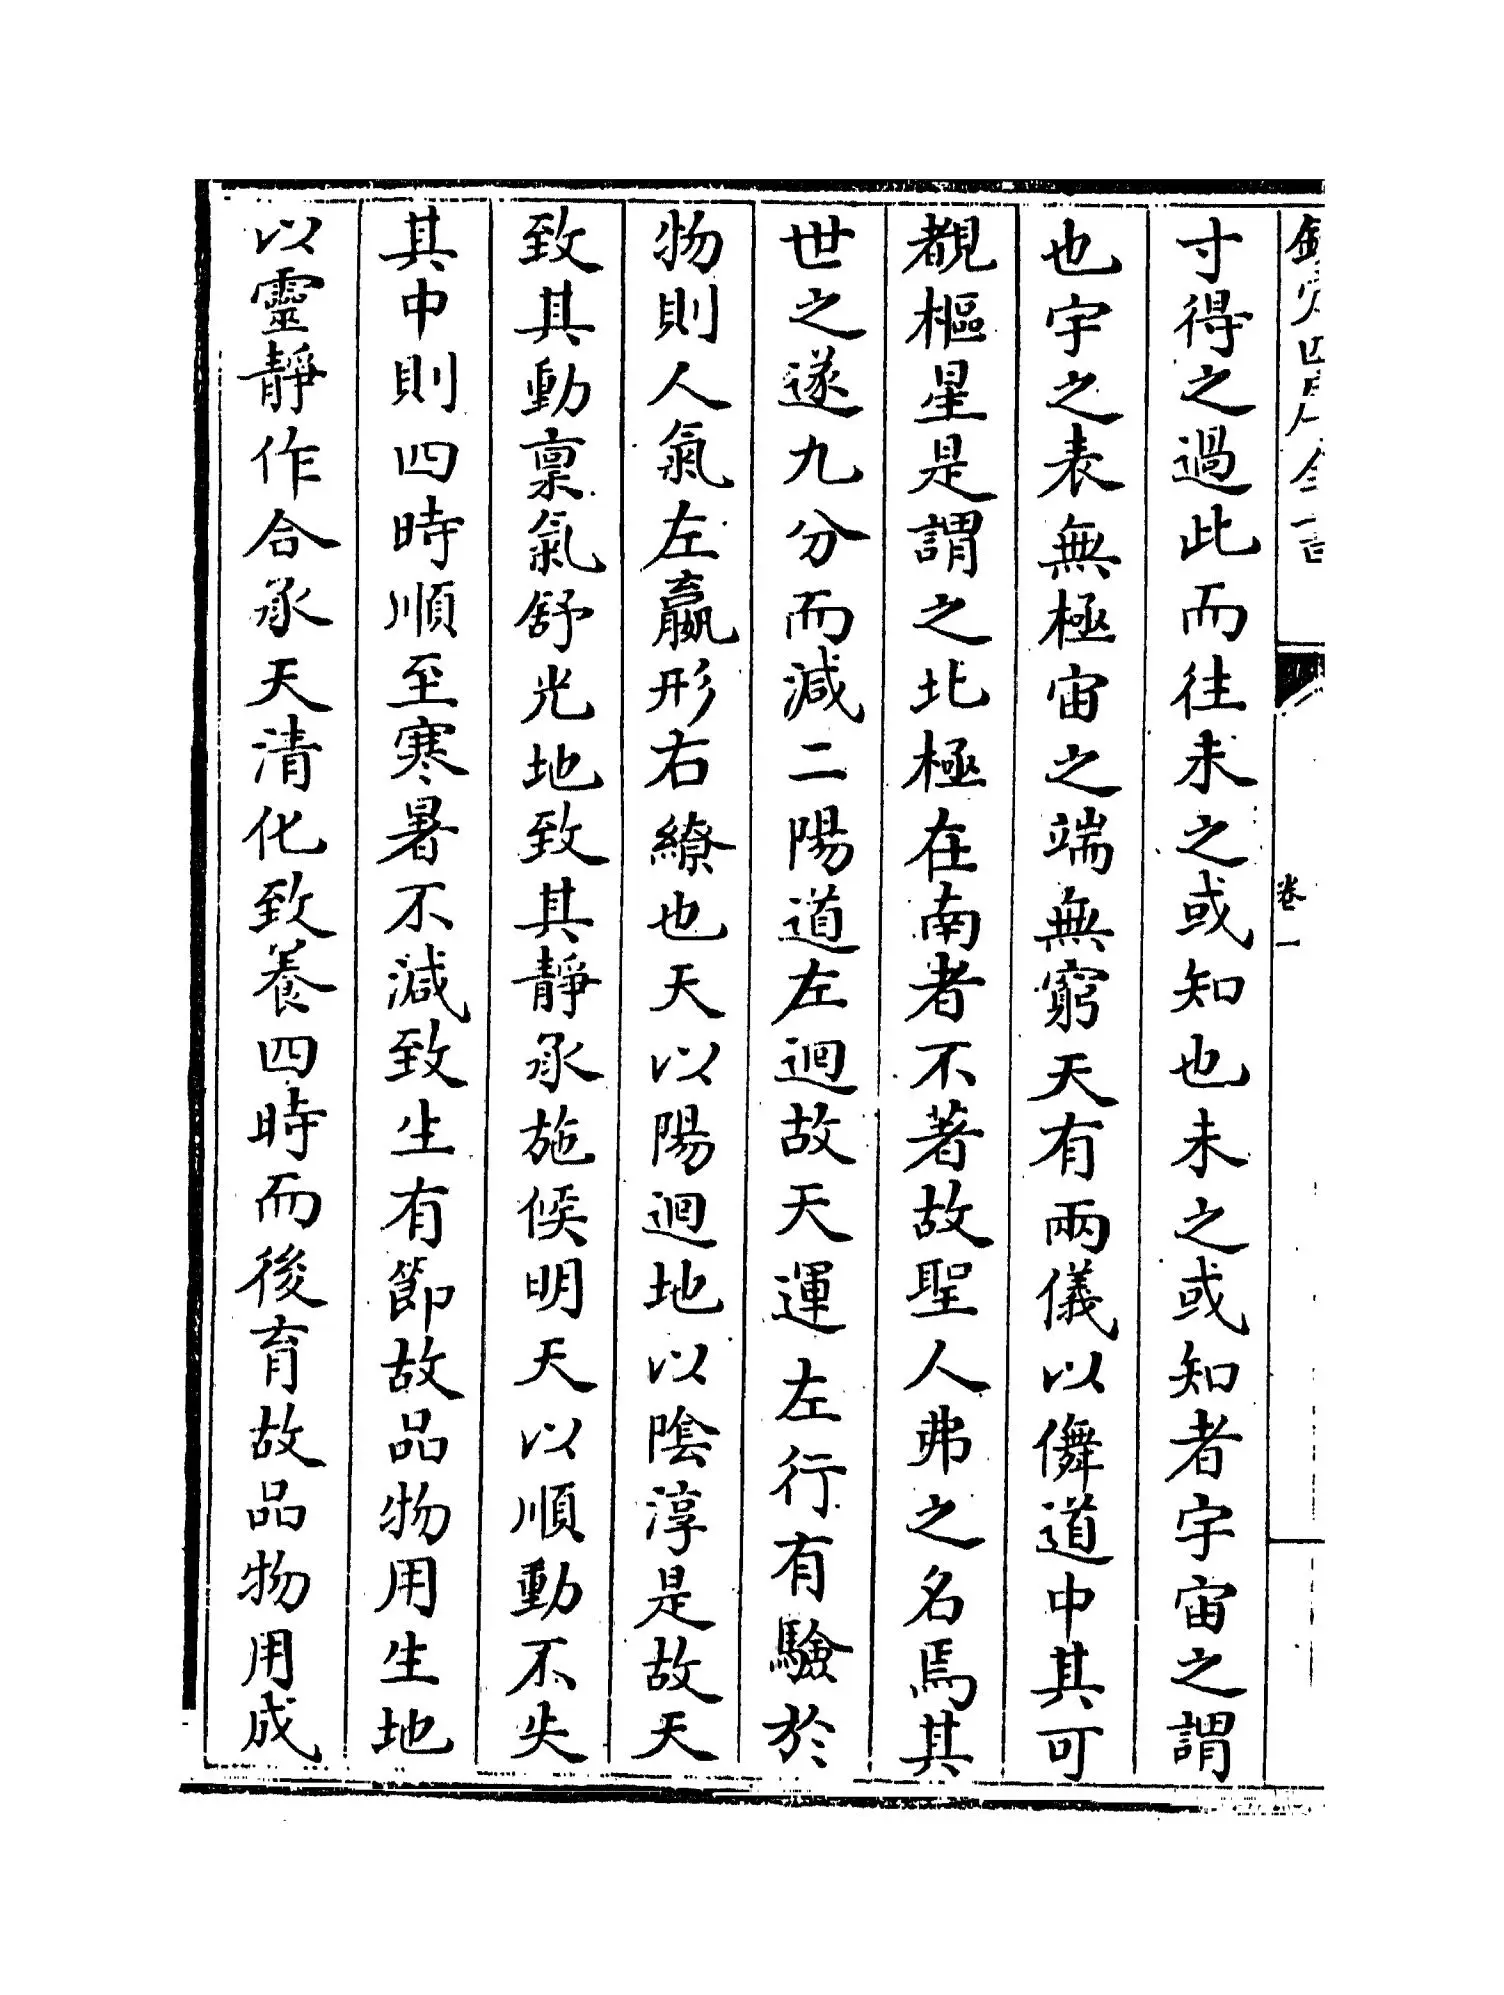 欽定四庫全書
卷一
寸得之過此而往未之或知也未之或知者宇宙之謂
也宇之表無極宙之端無窮天有兩儀以儛道中其可
覩樞星是謂之北極在南者不著故聖人弗之名焉其
世之遂九分而減二陽道左迴故天運左行有驗於
物則人氣左羸形右繚也天以陽迴地以陰淳是故天
致其動稟氣舒光地致其靜承施候明天以順動不失
其中則四時順至寒暑不減致生有節故品物用生地
以靈靜作合承天清化致養四時而後育故品物用成